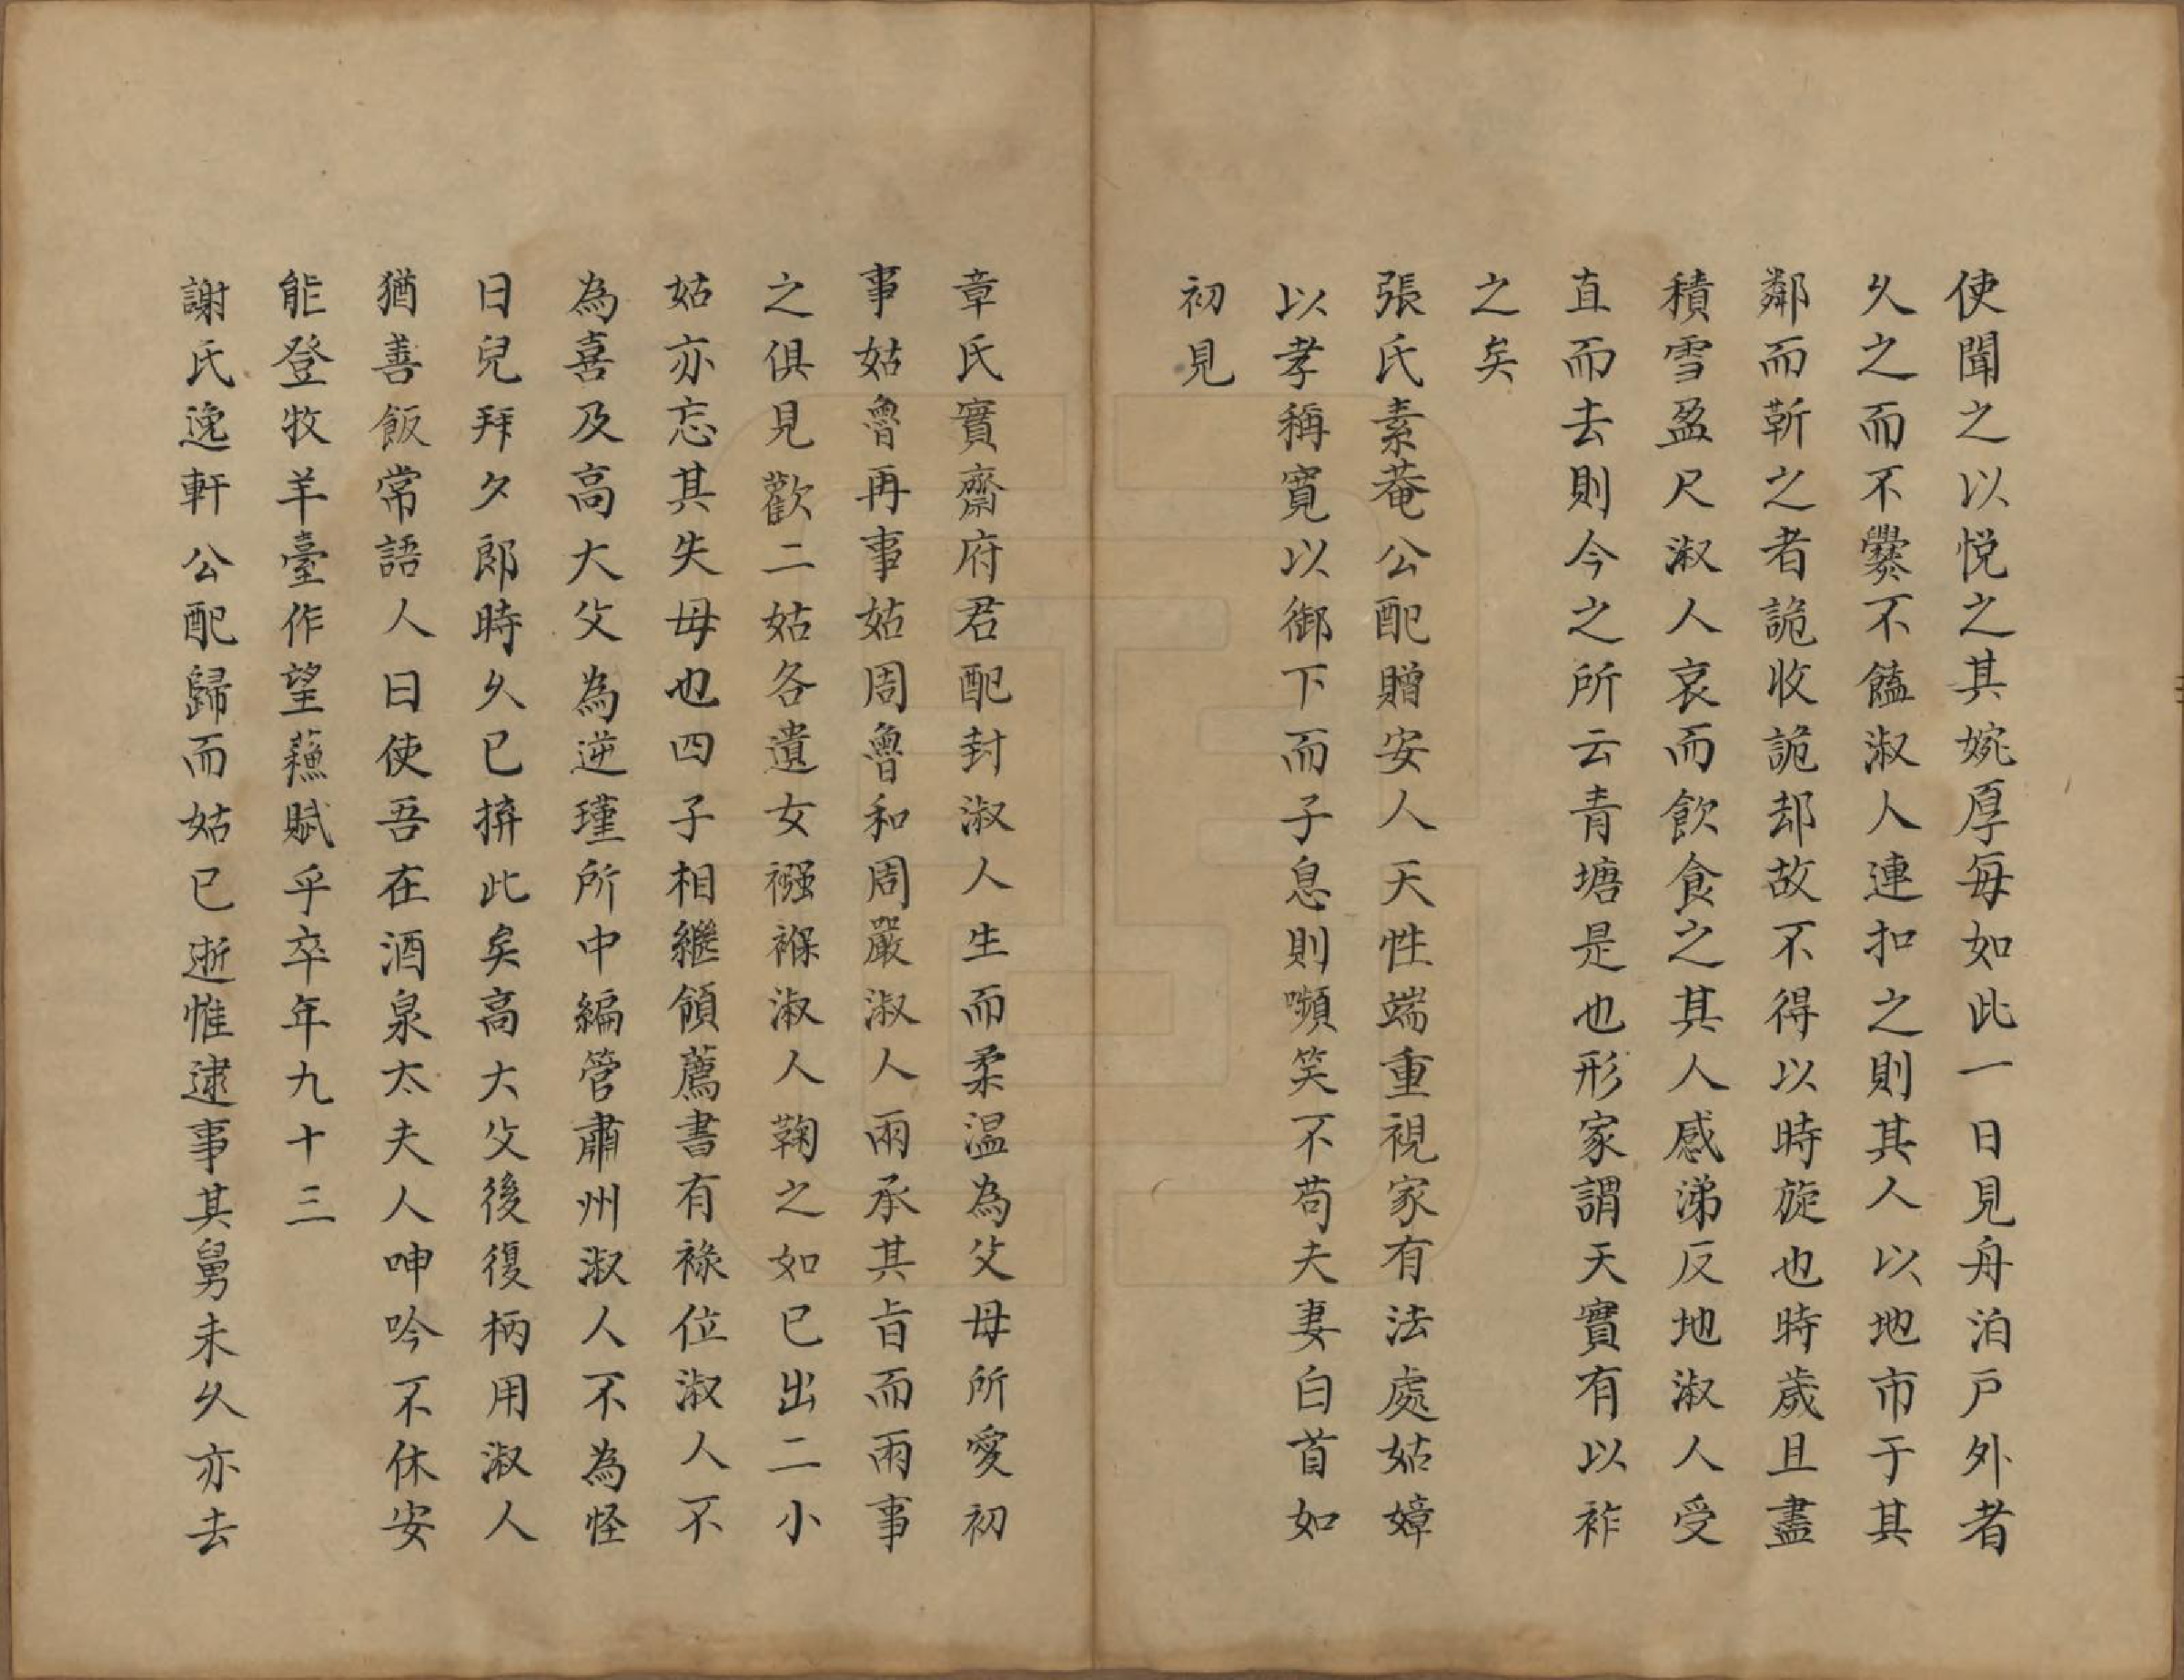 使聞之以悅之其婉厚每如此一日見舟泊戶外者
久之而不爨不饁淑人連扣之則其人以地市于其
鄰而靳之者詭收詭却故不得以時旋也時歲且盡
積雪盈尺淑人哀而飲食之其人感涕反地淑人受
直而去則今之所云青塘是也形家謂天實有以祚
之矣
張氏素菴公配贈安人天性端重視家有法處姑嫜
以孝稱寬以御下而子息則嚬笑不苟夫妻白首如
初見
章氏實齋府君配封淑人生而柔温為父母所愛初
事姑魯再事姑周魯和周嚴淑人兩承其旨而兩事
之俱見歡二姑各遺女襁褓淑人鞠之如已出二小
姑亦忘其失母也四子相繼領薦書有祿位淑人不
為喜及高大父為逆瑾所中編管肅州淑人不為怪
日兒拜夕郎時久已拚此矣高大父後復柄用淑人
猶善飯常語人曰使吾在酒泉太夫人呻吟不休安
能登牧羊臺作望蘓賦乎卒年九十三
謝氏逸軒公配歸而姑已逝惟逮事其舅未久亦去